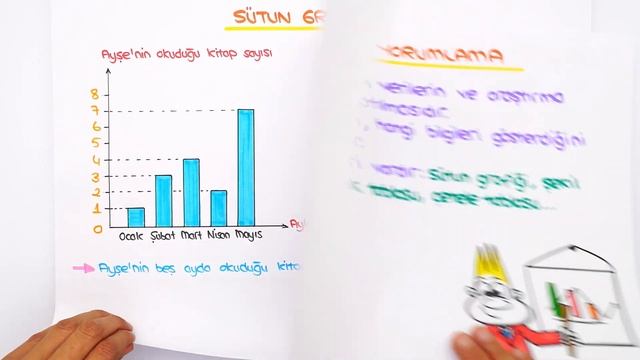 SÜTUN GR
Ayşe'nin okuduğu kitap sayısı
8
7
6
5
4
3
2
1
0
Ocak Şubat Mart Nisan Mayıs
Ay
Ayşe'nin beş ayda okuduğu kita
YORUMLAMA
verilerin ve araştırma
hangi bilgileri gösterdiğini
vardır: sütun grafiği, şekil
tablosu, çetele tablosu...